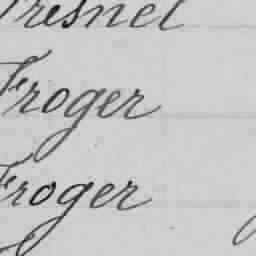 Fresnel
Froger
Froger